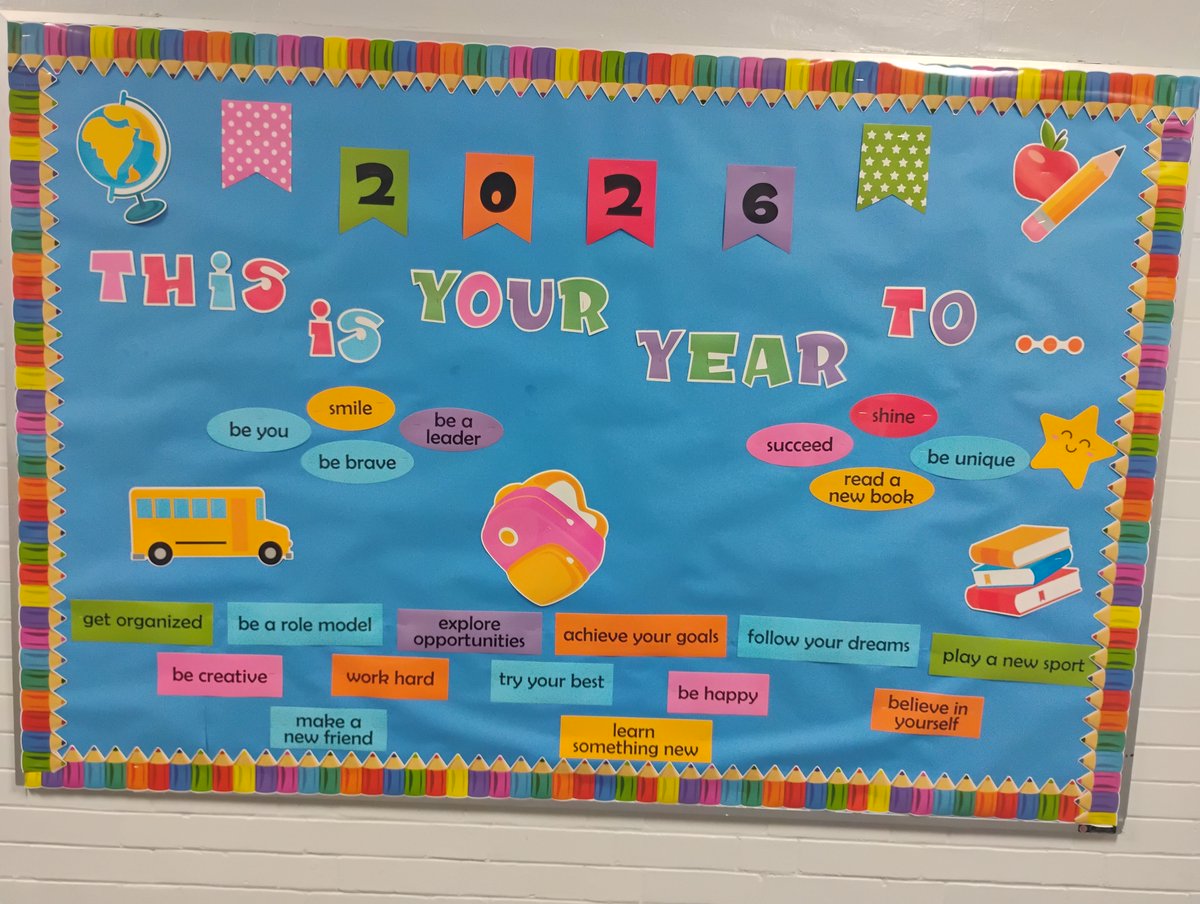 2026
THIS is YOUR YEAR TO ...
smile
be you
be a
leader
be brave
shine
succeed
be unique
read a
new book
get organized
be a role model
explore
opportunities
achieve your goals
follow your dreams
play a new sport
be creative
work hard
try your best
be happy
believe in
yourself
make a
new friend
learn
something new